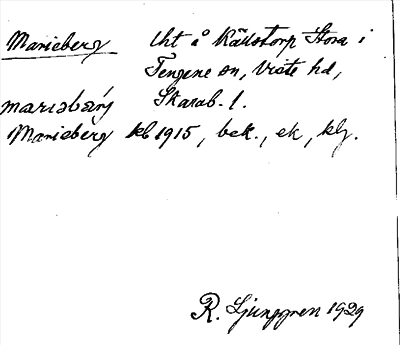 Marieberg lht å Källstorp Stora i
Tengene sn, Viste hd,
marıəbærj Skarab. l.
Marieberg kb 1915, bek., ek, klj.
R. Ljunggren 1929